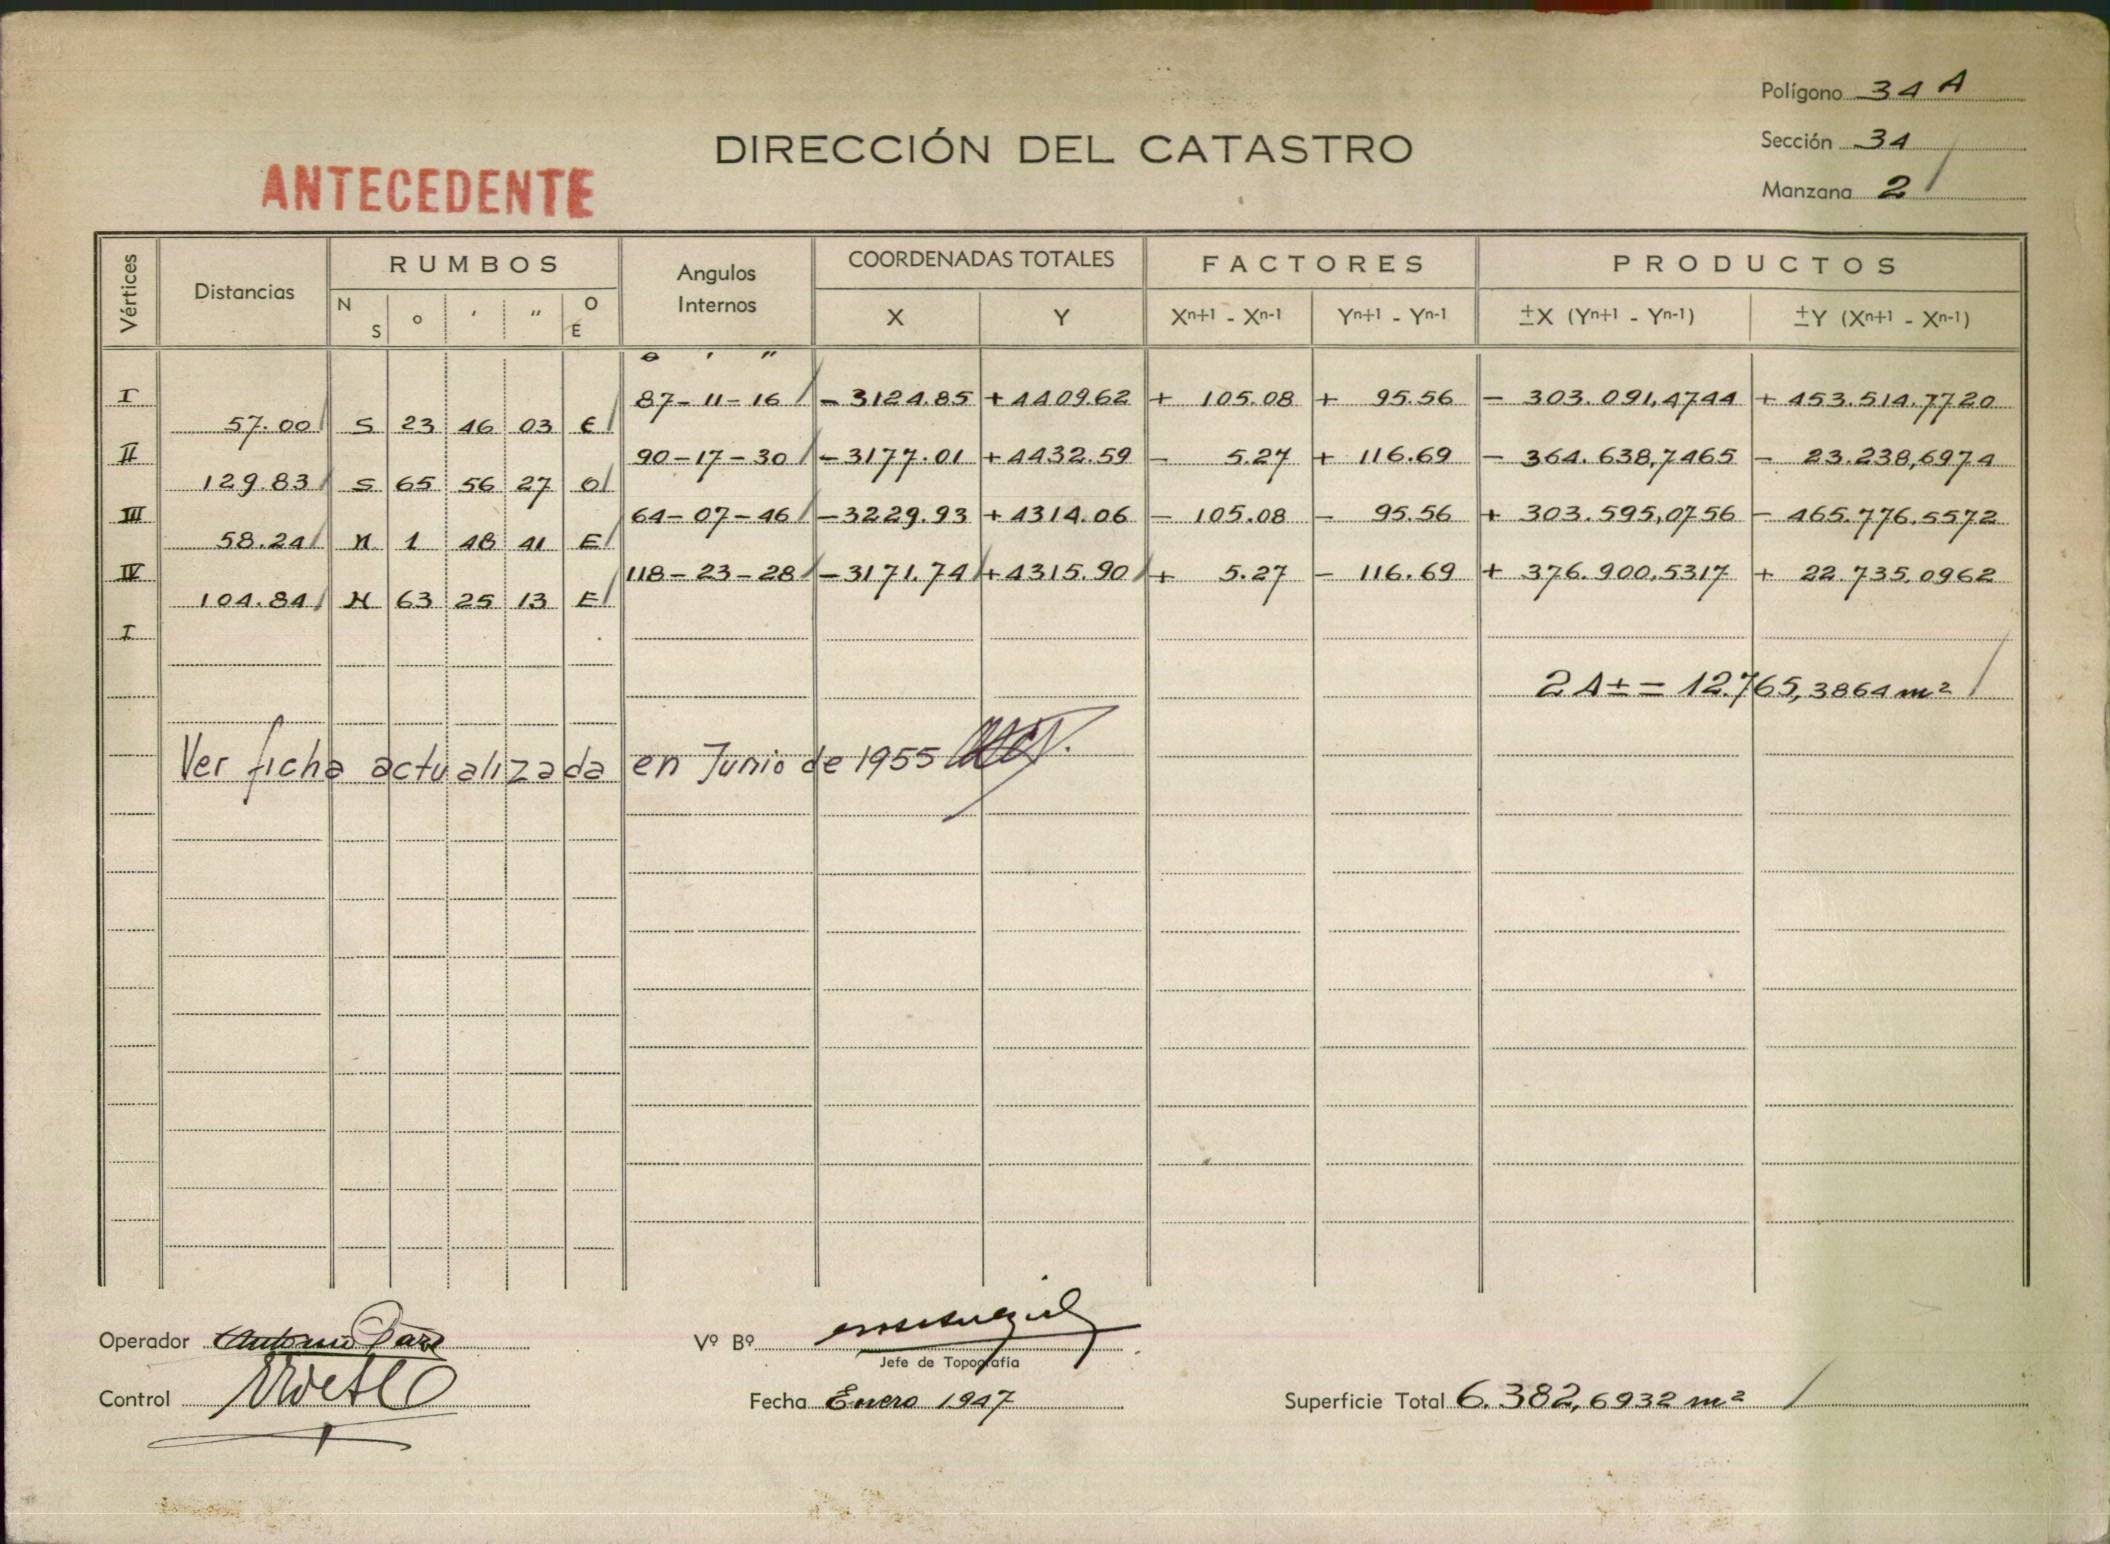 Polígono 34 A
Sección 34
DIRECCIÓN DEL CATASTRO
ANTECEDENTE
Manzana 2
Vértices Distancias RUMBOS Angulos Internos COORDENADAS TOTALES FACTORES PRODUCTOS
N S o ' " O E X Y Xn+1 - Xn-1 Yn+1 - Yn-1 ±X (Yn+1 - Yn-1) ±Y (Xn+1 - Xn-1)
o ' "
I 87-11-16 -3124.85 +4409.62 + 105.08 + 95.56 - 303.091,4744 + 453.514.7720
57.00 S 23 46 03 E
II 90-17-30 -3177.01 +4432.59 - 5.27 + 116.69 - 364.638,7465 - 23.238,6974
129.83 S 65 56 27 O
III 64-07-46 -3229.93 +4314.06 - 105.08 - 95.56 + 303.595,0756 - 465.776.5572
58.24 N 1 48 41 E
IV 118-23-28 -3171.74 +4315.90 + 5.27 - 116.69 + 376.900,5317 + 22.735.0962
104.84 N 63 25 13 E
I
2A± = 12.765,3864 m²
Ver ficha actualizada en Junio de 1955
Operador Antonio Vº Bº
Jefe de Topografía
Control Fecha Enero 1947 Superficie Total 6.382,6932 m²